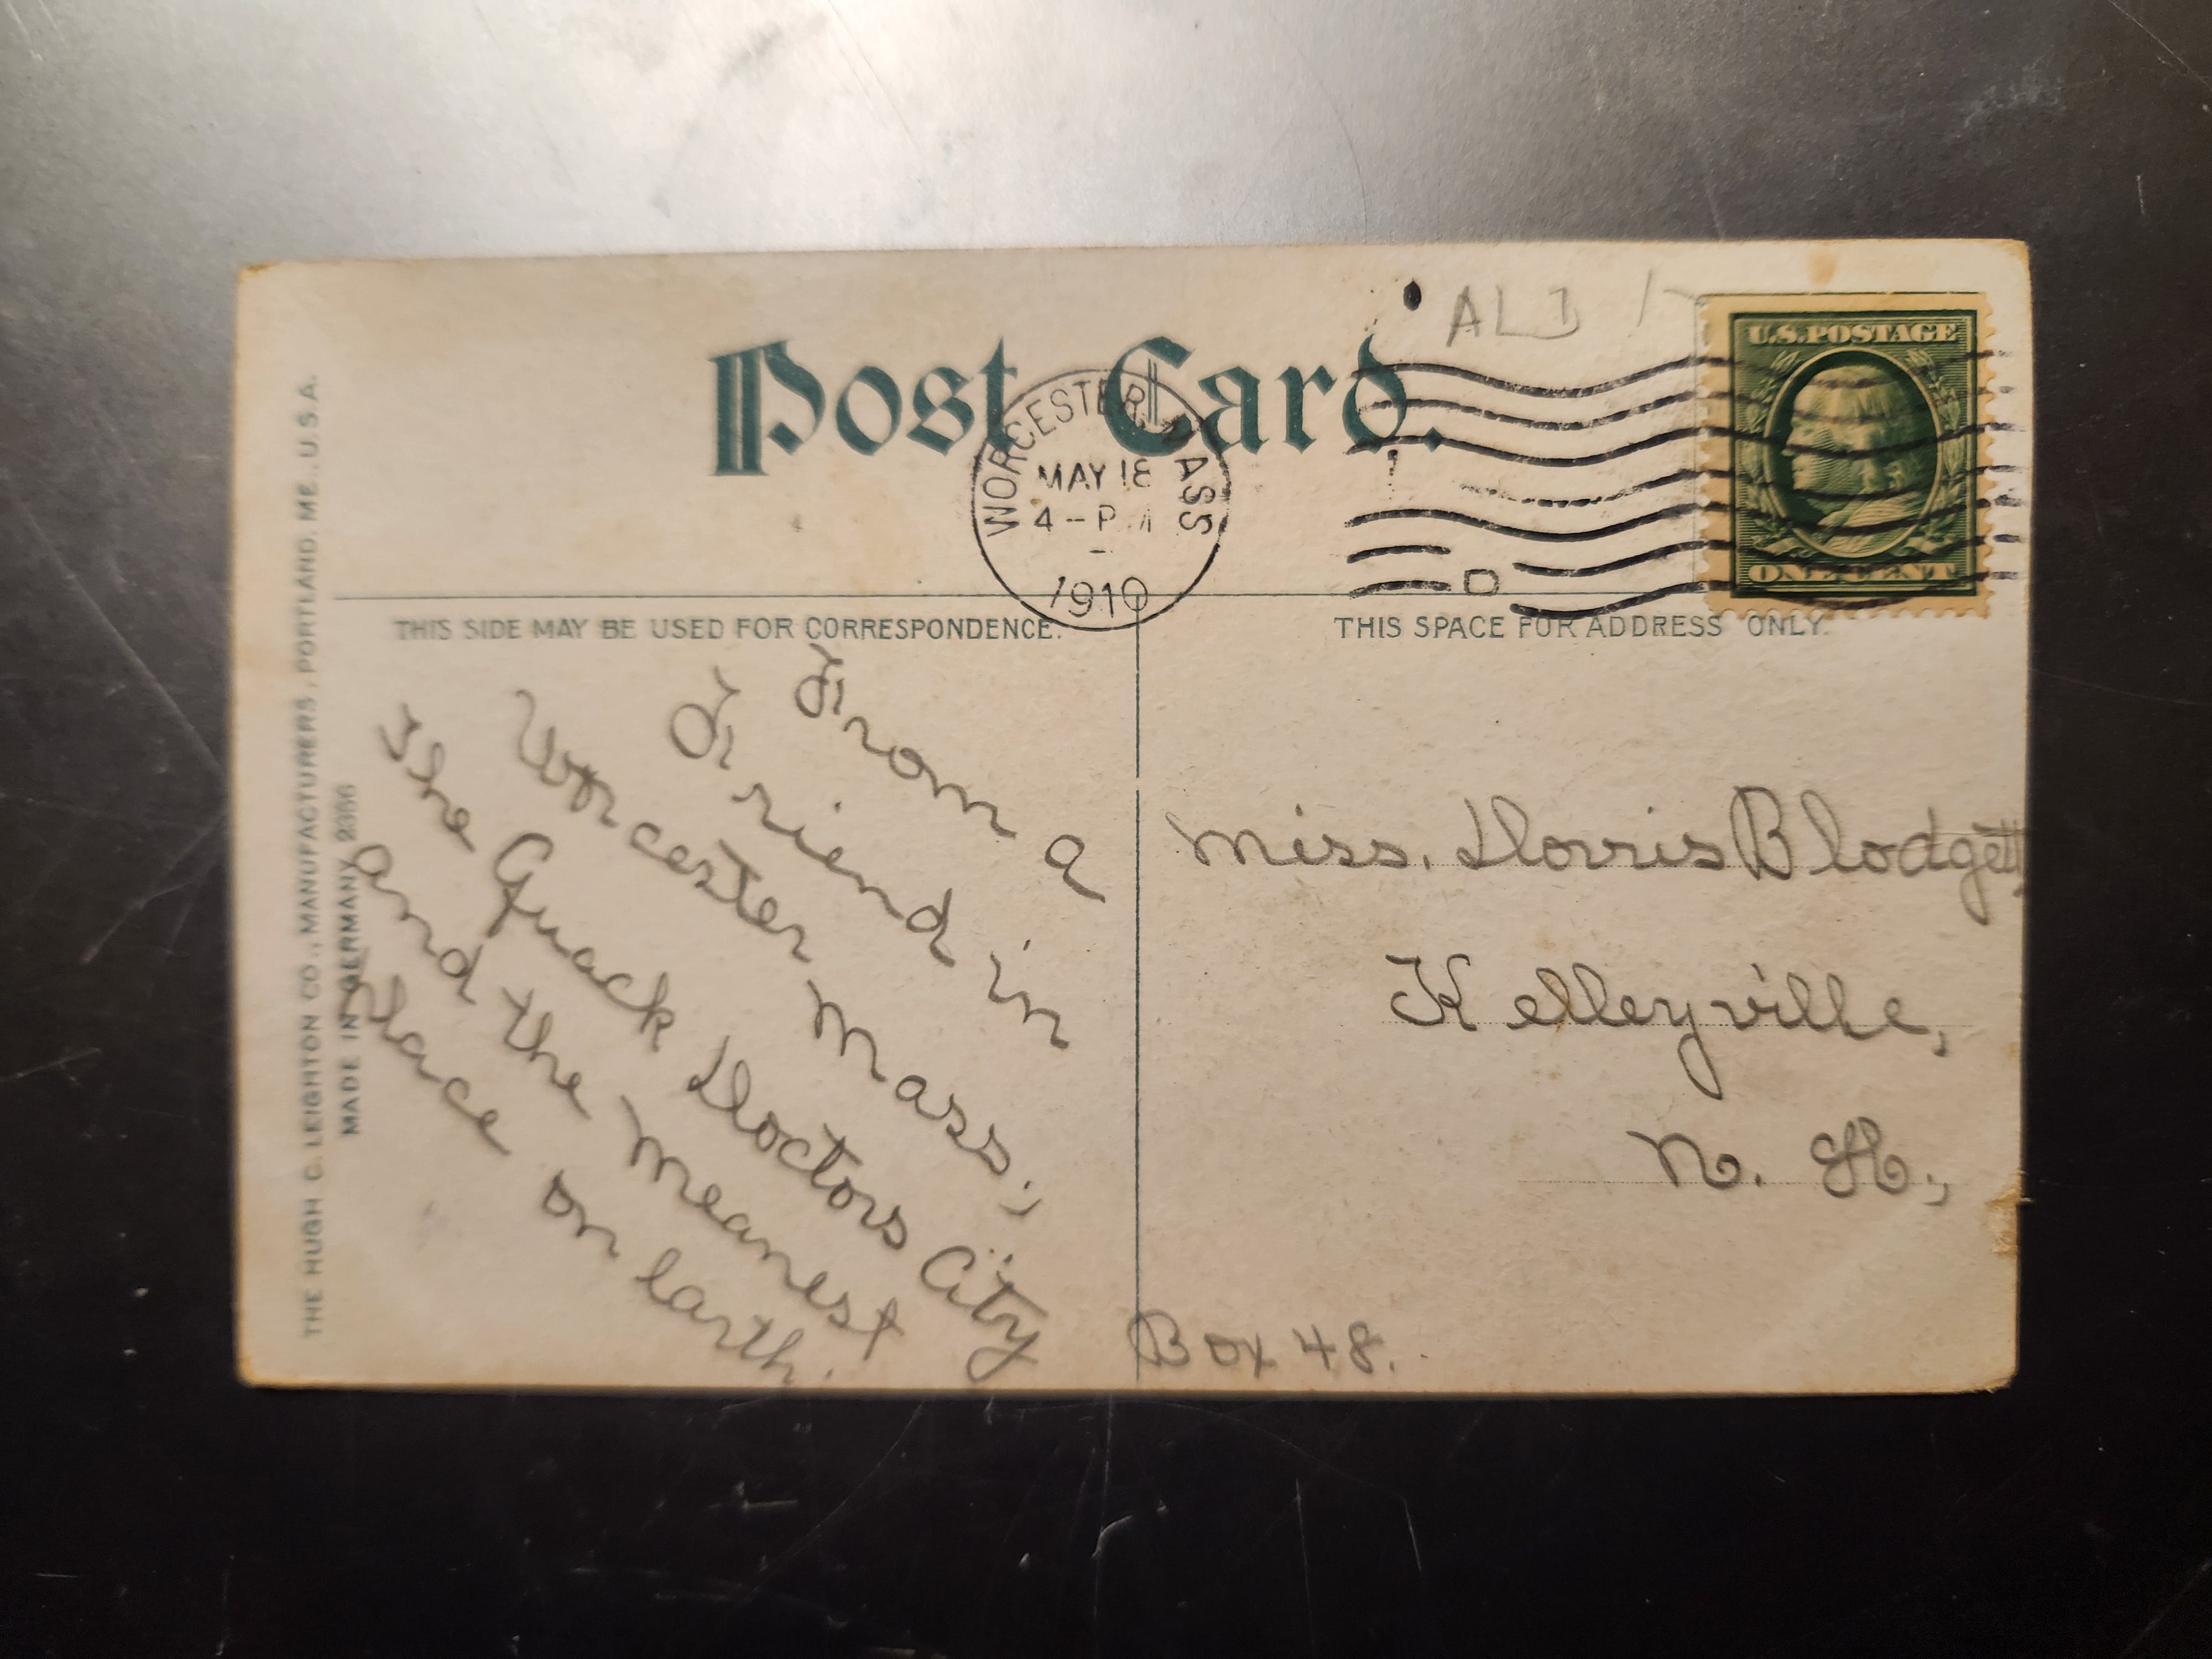 ALB
Post Card.
U.S. POSTAGE
ONE CENT
WORCESTER, MASS
MAY 18
4 - P M
1910
D
THIS SIDE MAY BE USED FOR CORRESPONDENCE.
THIS SPACE FOR ADDRESS ONLY.
THE HUGH C. LEIGHTON CO., MANUFACTURERS, PORTLAND, ME., U.S.A.
MADE IN GERMANY
From a
Friend in
Worcester Mass.,
The Quack Doctors City
and the meanest
Place on earth.
Miss. Dorris Blodgett,
Kelleyville,
N. H.,
Box 48.